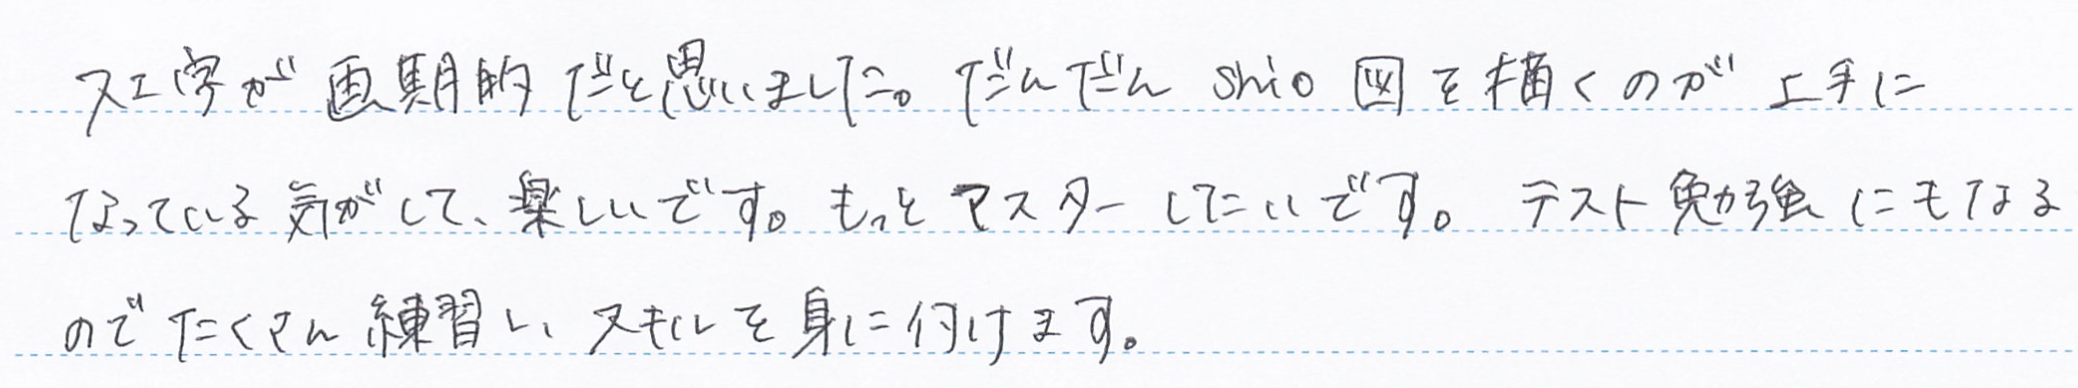 ス工字が画期的だと思いました。だんだんshio図を描くのが上手に
なっている気がして、楽しいです。もっとマスターしたいです。テスト勉強にもなる
のでたくさん練習し、スキルを身に付けます。